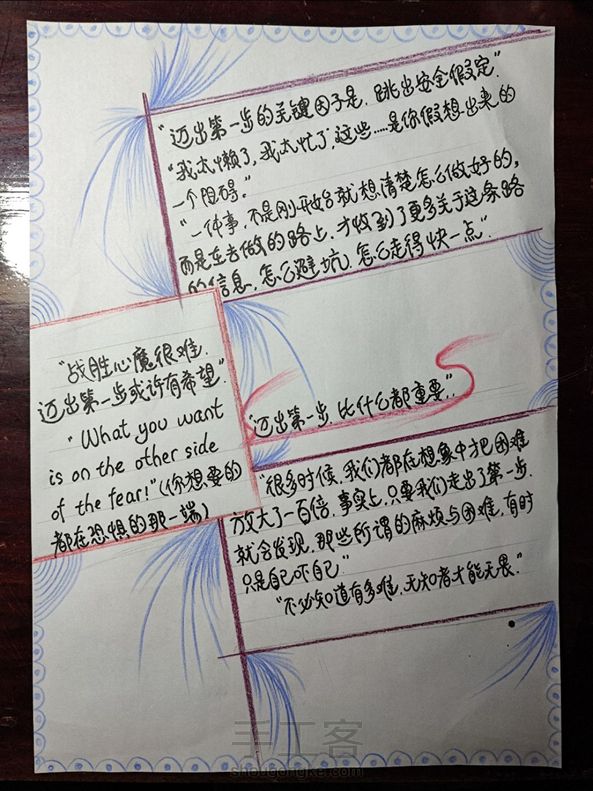 “迈出第一步的关键因子是，跳出安全假定”
“我太懒了，我太忙了，这些……是你假想出来的
一个阻碍。”
“一件事，不是刚开始就想清楚怎么做好的，
而是在去做的路上，才收到了更多关于这条路
的信息，怎么避坑，怎么走得快一点”
“战胜心魔很难，
迈出第一步或许有希望”
“What you want
is on the other side
of the fear!”（你想要的
都在恐惧的那一端）
迈出第一步，比什么都重要”..
“很多时候，我们都在想象中把困难
放大了一百倍，事实上，只要我们走出了第一步，
就会发现，那些所谓的麻烦与困难，有时
只是自己吓自己”
“不必知道有多难，无知者才能无畏.”
手工客
shougongke.com